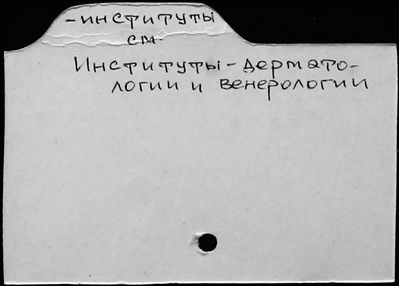 -институты
см.
Институты-дермато-
логии и венерологии